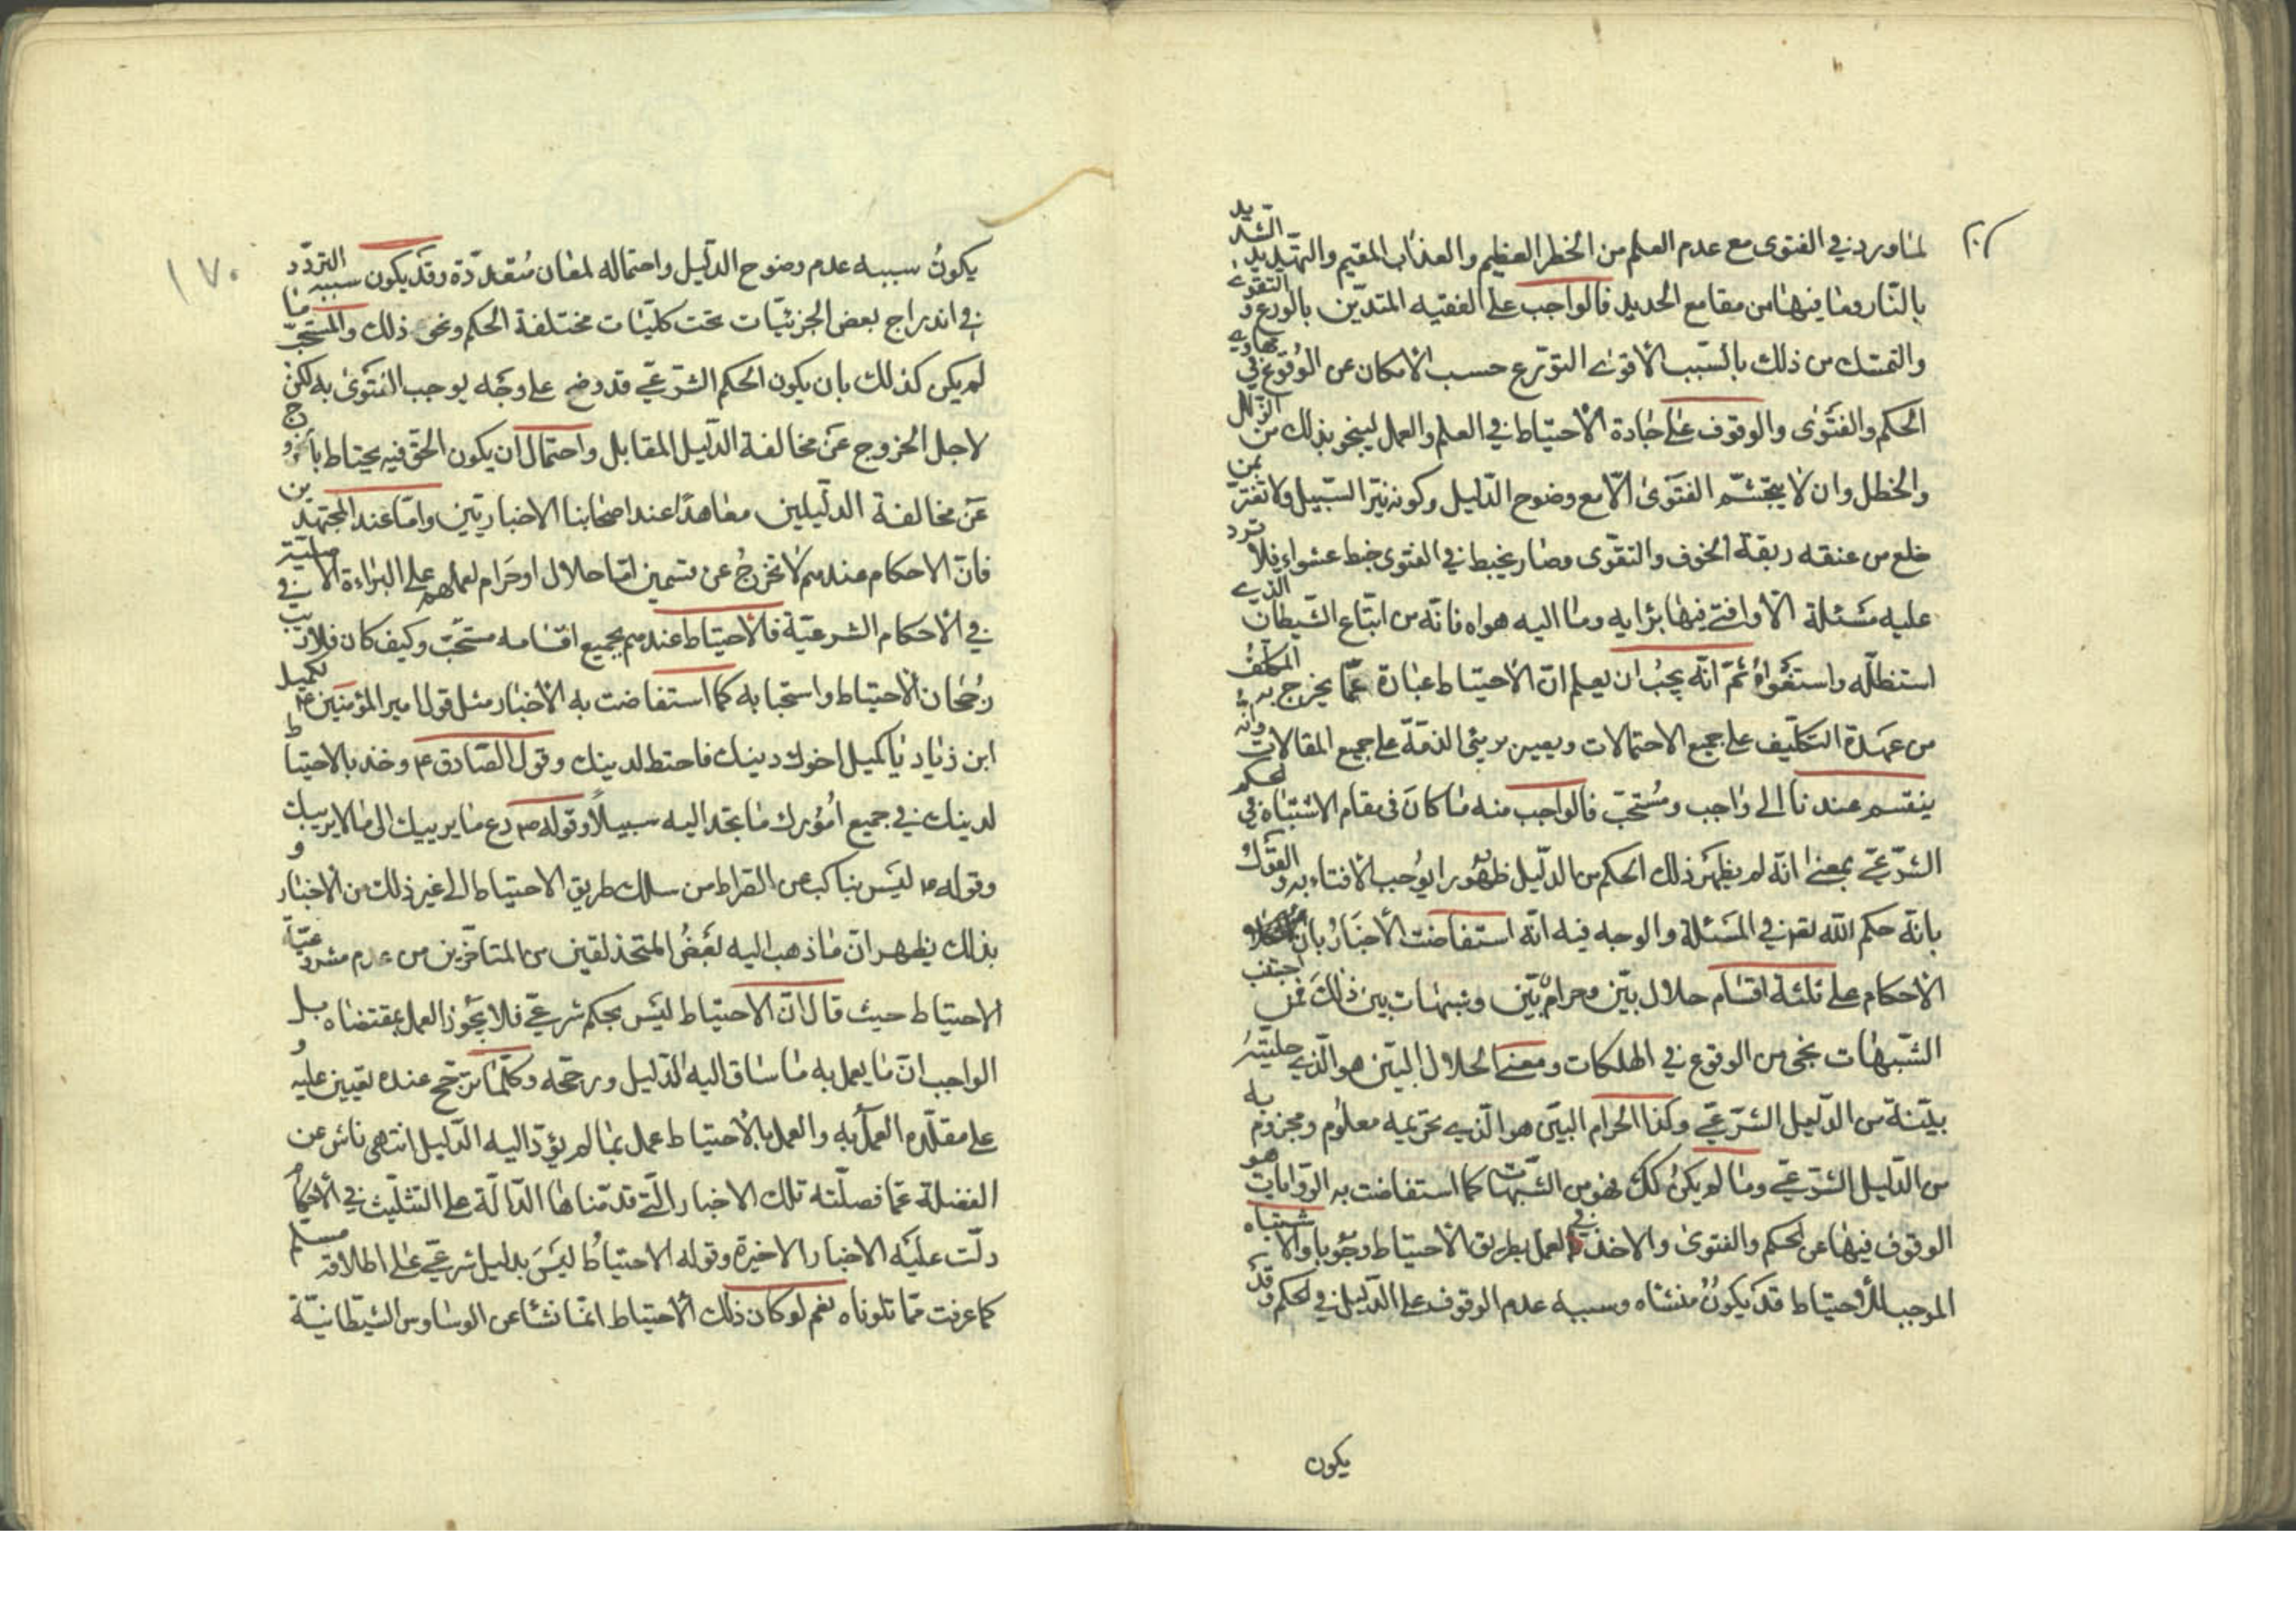 لما ورد في الفتوى مع عدم العلم من الخطر العظيم والعذاب المقيم والتهديد الشديد
بالنار وما فيها من مقامع الحديد فالواجب على الفقيه المتدين بالورع والتقوى
والتمسك من ذلك بالسبب الأقوى التورع حسب الامكان عن الوقوع في مهاوي
الحكم والفتوى والوقوف على جادة الاحتياط في العلم والعمل لينجو بذلك من الزلل
والخطل وان لا يتجشم الفتوى الا مع وضوح الدليل وكونه نير السبيل ولا تغتر بمن
خلع من عنقه ربقة الخوف والتقوى وصار يخبط في الفتوى خبط عشواء فلا ترد
عليه مسئلة الا وافتى فيها برايه وما اليه هواه فانه من اتباع الشيطان الذي
استظله واستغواه ثم انه يجب ان يعلم ان الاحتياط عبارة عما يخرج به المكلف
من عهدة التكليف على جميع الاحتمالات ويصير بريئ الذمة على جميع المقالات وانه
ينقسم عندنا الى واجب ومستحب فالواجب منه ما كان في مقام الاشتباه في الحكم
الشرعي بمعنى انه لم يظهر ذلك الحكم من الدليل ظهورا يوجب الافتاء به والقول
بانه حكم الله تعم في المسئلة والوجه فيه انه استفاضت الأخبار بان
الاحكام على ثلثة اقسام حلال بين وحرام بين وشبهات بين ذلك فمن اجتنب
الشبهات نجى من الوقوع في الهلكات ومعنى الحلال البين هو الذي حليته
بينة من الدليل الشرعي وكذا الحرام البين هو الذي تحريمه معلوم ومجزوم به
من الدليل الشرعي وما لم يكن كك فهو من الشبهات كما استفاضت به الروايات هو
الوقوف فيها عن الحكم والفتوى والاخذ في العمل بطريق الاحتياط وجوبا والاشتباه
الموجب للاحتياط قد يكون منشاه وسببه عدم الوقوف على الدليل في الحكم وقد
يكون
١٧٠
يكون سببه عدم وضوح الدليل واحتماله لمعان متعددة وقد يكون سببه التردد
في اندراج بعض الجزئيات تحت كليات مختلفة الحكم ونحو ذلك والمستحب ما
لم يكن كذلك بان يكون الحكم الشرعي قد وضح على وجه يوجب الفتوى به لكن
لاجل الخروج عن مخالفة الدليل المقابل واحتمال ان يكون الحق فيه يحتاط بالخروج
عن مخالفة الدليلين معا هذا عند اصحابنا الاخباريين واما عند المجتهدين
فان الاحكام عندهم لا تخرج عن قسمين اما حلال او حرام لعملهم على البراءة الاصلية في
في الاحكام الشرعية فالاحتياط عندهم بجميع اقسامه مستحب وكيف كان فلا ريب
رجحان الاحتياط واستحبابه كما استفاضت به الأخبار مثل قول امير المؤمنين ع لكميل
ابن زياد يا كميل اخوك دينك فاحتط لدينك وقول الصادق ع وخذ بالاحتياط
لدينك في جميع امورك ما تجد اليه سبيلا وقوله ص دع ما يريبك الى ما لا يريبك
وقوله ع ليس بناكب عن الصراط من سلك طريق الاحتياط الى غير ذلك من الاخبار و
بذلك يظهر ان ما ذهب اليه بعض المتحذلقين من المتاخرين من عدم مشروعية
الاحتياط حيث قال ان الاحتياط ليس بحكم شرعي فلا يجوز العمل بمقتضاه بل
الواجب ان ما يعمل به ما ساق اليه الدليل ورجحه وكلما ترجح عنده تعيين عليه و
على مقلده العمل به والعمل بالاحتياط عمل بما لم يؤد اليه الدليل انتهى ناش عن
الغفلة عما فصلته تلك الاخبار التي قدمناها الدالة على التثليث في الأحكام
دلت عليه الاخبار الاخيرة وقوله الاحتياط ليس بدليل شرعي على اطلاقه مسلم
كما عرفت مما تلوناه نعم لو كان ذلك الاحتياط انما نشا عن الوساوس الشيطانية